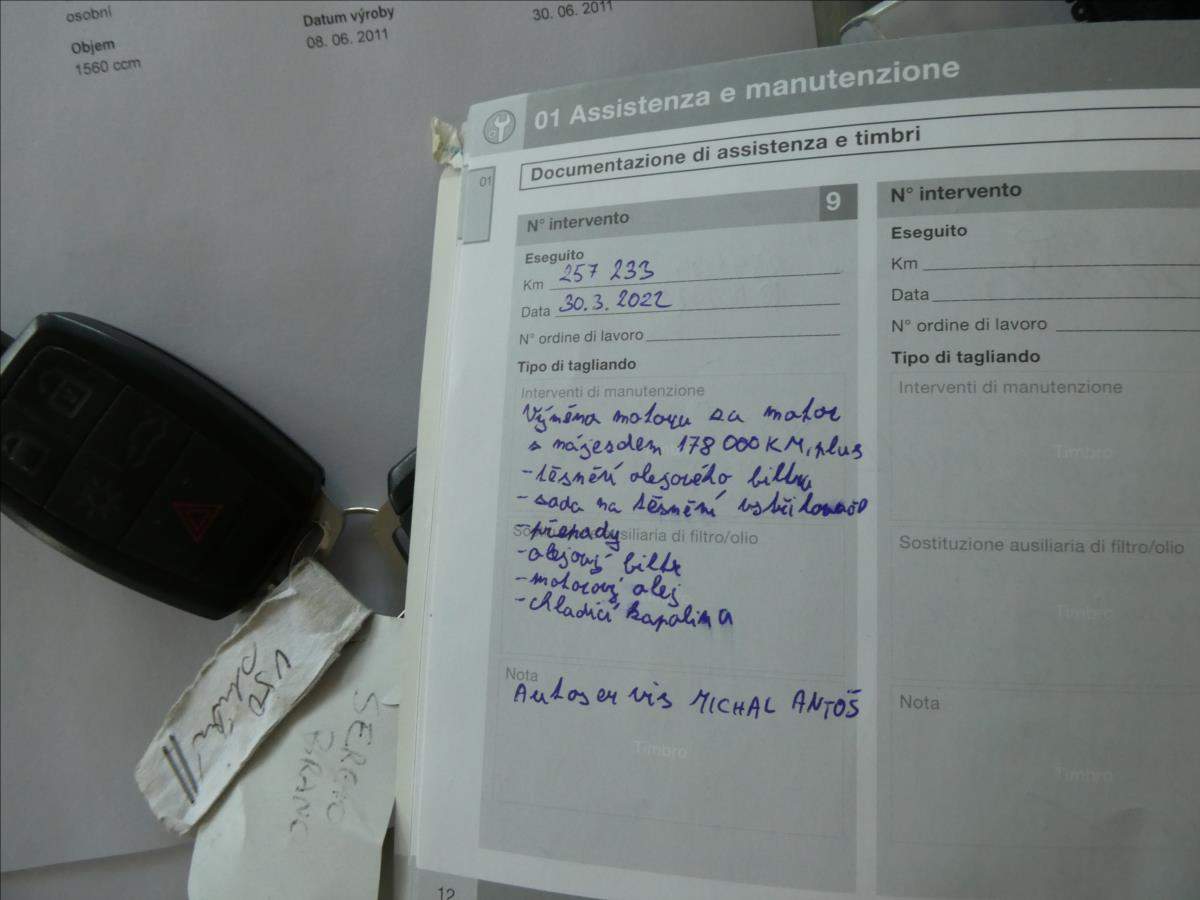 osobní
Objem
1560 ccm
Datum výroby
08. 06. 2011
30. 06. 2011
01 Assistenza e manutenzione
Documentazione di assistenza e timbri
01
N° intervento 9
Eseguito
Km 257 233
Data 30.3.2022
N° ordine di lavoro
Tipo di tagliando
Interventi di manutenzione
Výměna motoru za motor
s nájezdem 178 000 KM, plus
- těsnění olejového filtru
- sada na těsnění vstřikovačů
- přepady
Sostituzione ausiliaria di filtro/olio
- olejový filtr
- motorový olej
- chladící kapalina
Nota
Autoservis MICHAL ANTOŠ
Timbro
12
N° intervento
Eseguito
Km
Data
N° ordine di lavoro
Tipo di tagliando
Interventi di manutenzione
Timbro
Sostituzione ausiliaria di filtro/olio
Timbro
Nota
Timbro
V50
SERGIO
BRANC